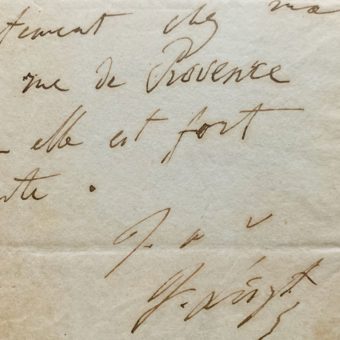 tement chez ma
rue de Provence
elle est fort
te.
t. a v.
F. Liszt